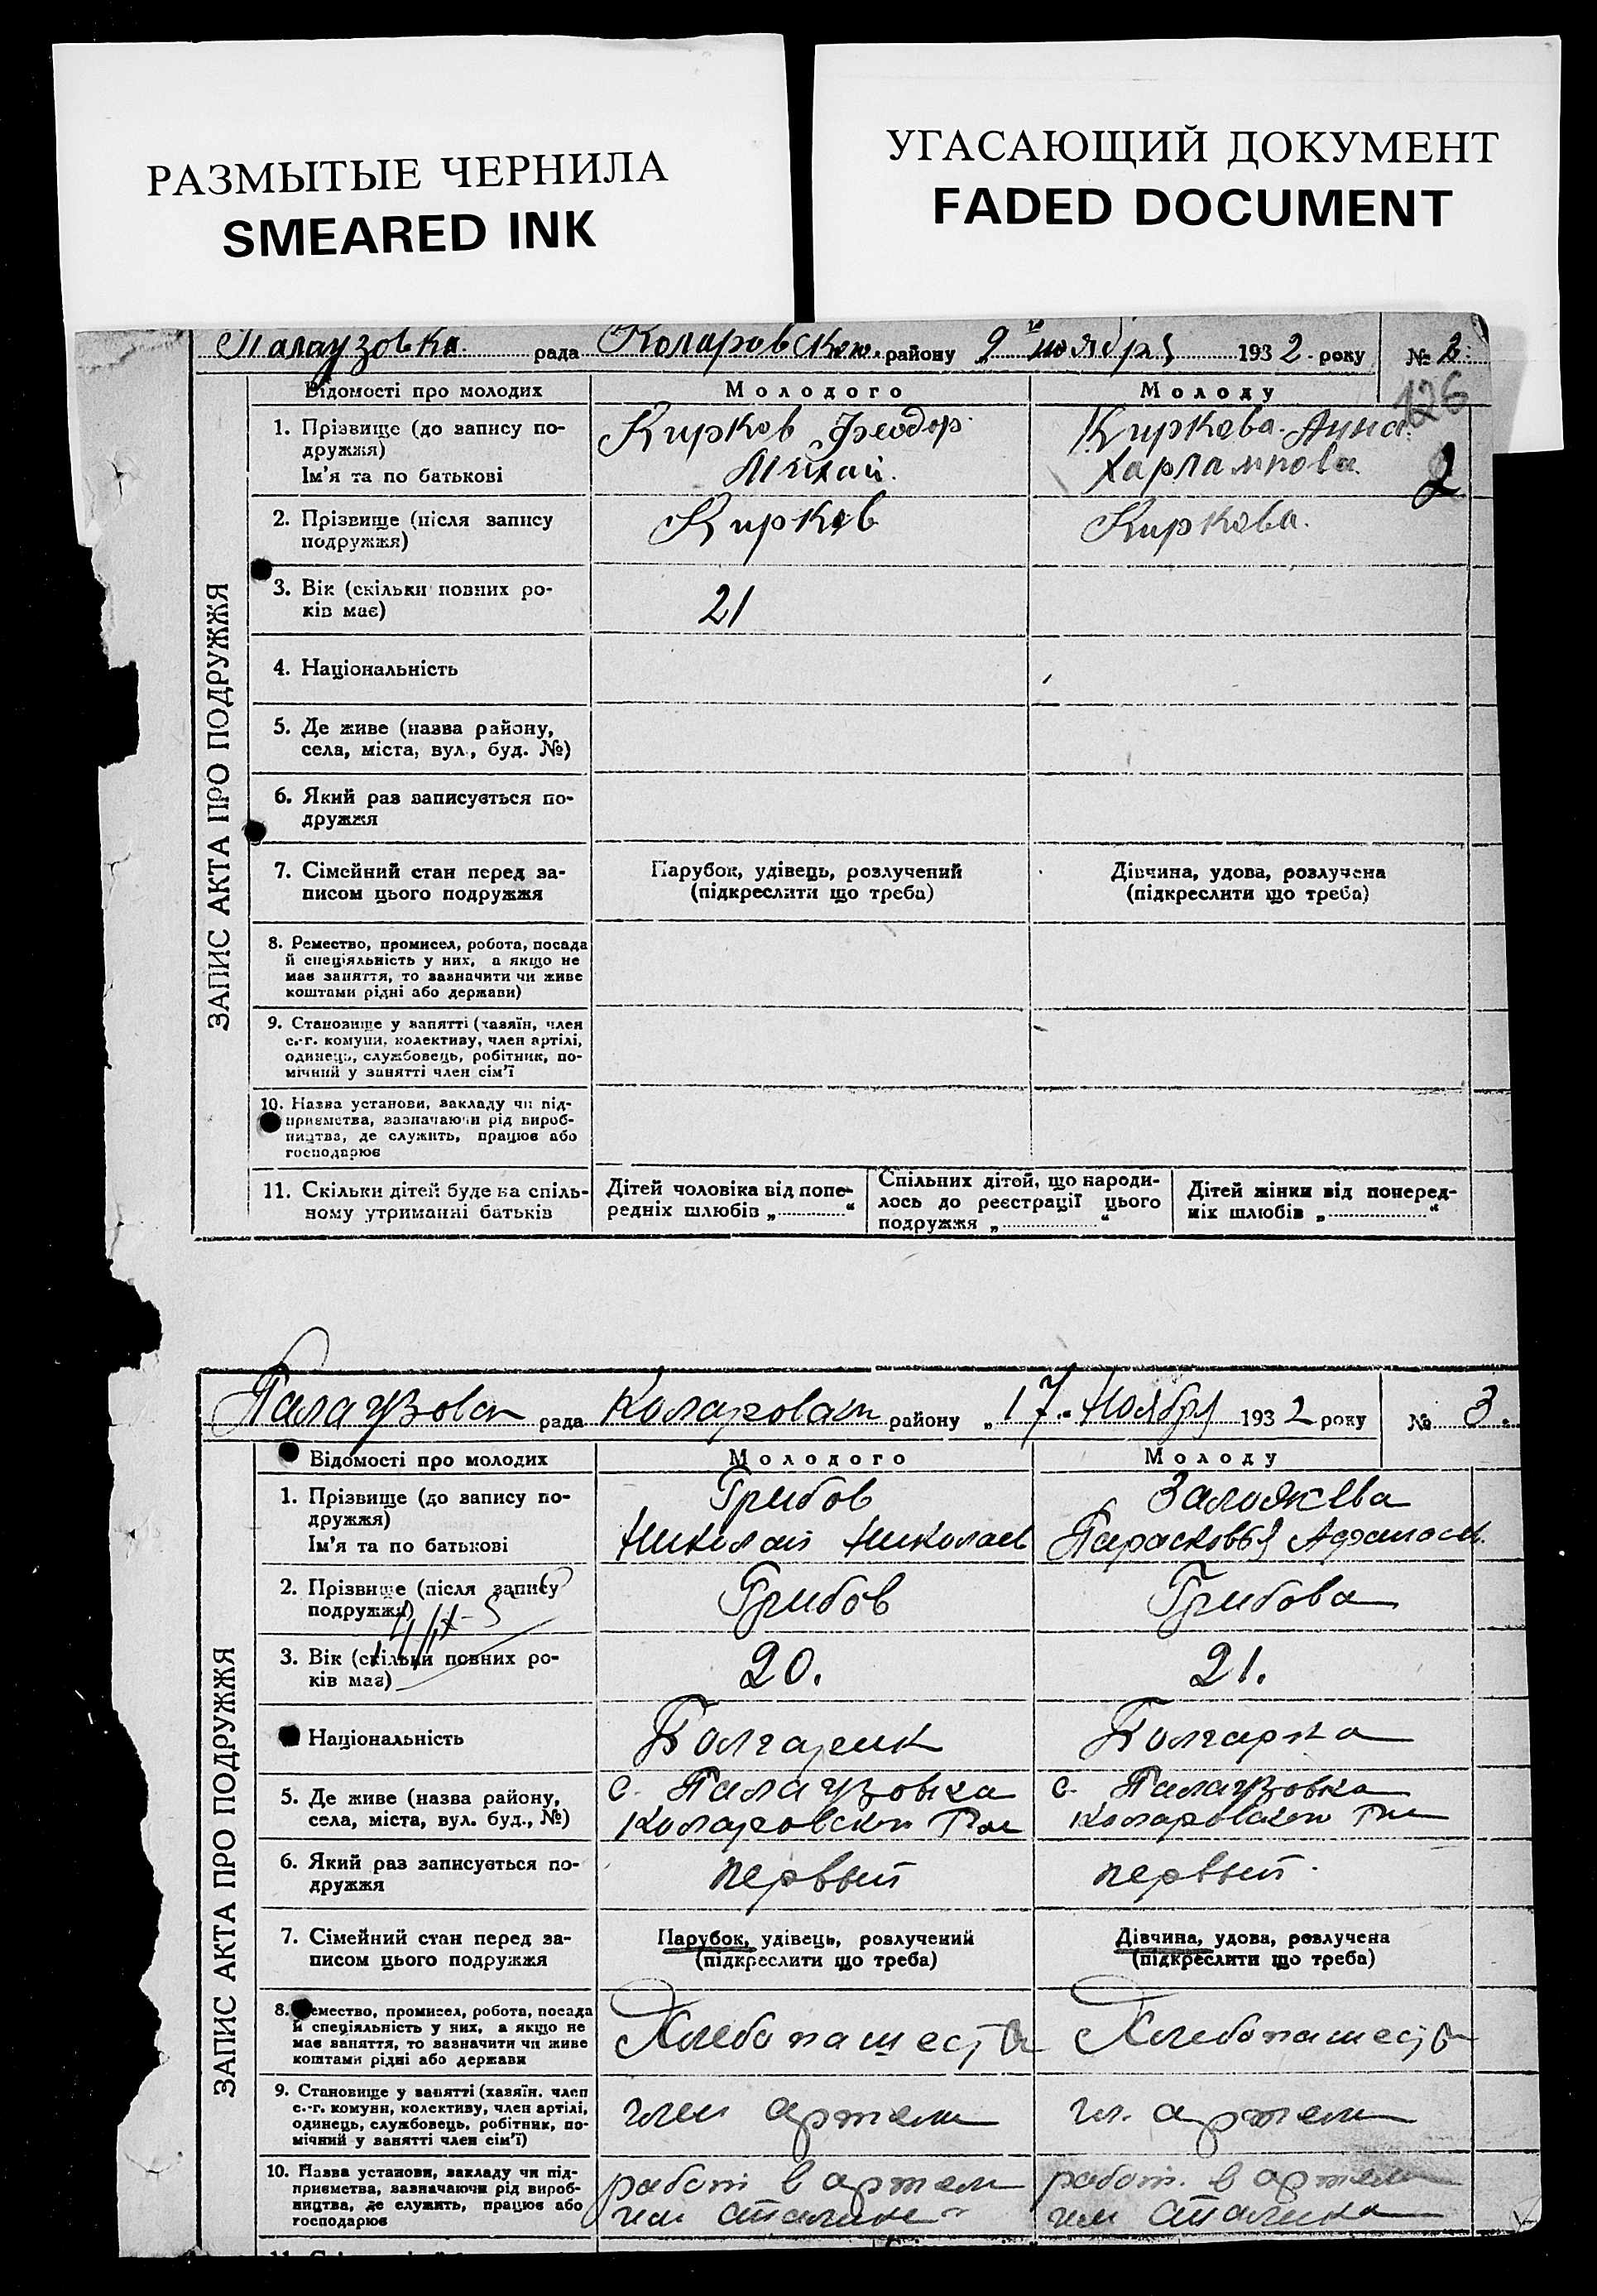 РАЗМЫТЫЕ ЧЕРНИЛА
SMEARED INK
УГАСАЮЩИЙ ДОКУМЕНТ
FADED DOCUMENT
Палаузовка рада Коларовского району 9 ноября 1932 року № 2
126
Відомості про молодих Молодого Молоду
1. Прізвище (до запису по-
дружжя)
Ім'я та по батькові
Кирков Феодор
Михай.
Киркова Анна
Харлампова
2
2. Прізвище (після запису
подружжя)
Кирков
Киркова.
3. Вік (скільки повних ро-
ків має)
21
4. Національність
5. Де живе (назва району,
села, міста, вул., буд. №)
6. Який раз записується по-
дружжя
7. Сімейний стан перед за-
писом цього подружжя
Парубок, удівець, розлучений
(підкреслити що треба)
Дівчина, удова, розлучена
(підкреслити що треба)
8. Ремество, промисел, робота, посада
й спеціяльність у них, а якщо не
має заняття, то зазначити чи живе
коштами рідні або держави)
9. Становище у занятті (хазяїн, член
с.-г. комуни, колективу, член артілі,
одинець, службовець, робітник, по-
мічний у занятті член сім'ї
10. Назва установи, закладу чи під-
приємства, зазначаючи рід вироб-
ництва, де служить, працює або
господарює
11. Скільки дітей буде на спіль-
ному утриманні батьків
Дітей чоловіка від попе-
редніх шлюбів „ “
Спільних дітей, що народи-
лось до реєстрації цього
подружжя „ “
Дітей жінки від поперед-
ніх шлюбів „ “
ЗАПИС АКТА ПРО ПОДРУЖЖЯ
рада району „17“ Ноября 1932 року № 3.
Відомості про молодих Молодого Молоду
1. Прізвище (до запису по-
дружжя)
Ім'я та по батькові
Грибов
Николай Николаев
Парасковья Афанасьев.
2. Прізвище (після запису
подружжя)
Грибов
Грибова
3. Вік (скільки повних ро-
ків має)
20.
21.
Національність
Болгарин
Болгарка
5. Де живе (назва району,
села, міста, вул. буд., №)
с. Палаузовка
Коларовском
с. Палаузовка
Коларовском
6. Який раз записується по-
дружжя
первый
первый.
7. Сімейний стан перед за-
писом цього подружжя
Парубок, удівець, розлучений
(підкреслити що треба)
Дівчина, удова, розлучена
(підкреслити що треба)
8. Ремество, промисел, робота, посада
й спеціяльність у них, а якщо не
має заняття, то зазначити чи живе
коштами рідні або держави
Хлебопашество
Хлебопашество
9. Становище у занятті (хазяїн, член
с.-г. комуни, колективу, член артілі,
одинець, службовець, робітник, по-
мічний у занятті член сім'ї)
член артели
чл. артели
10. Назва установи, закладу чи під-
приємства, зазначаючи рід вироб-
ництва, де служить, працює або
господарює
работ в артели
им Сталина
работ. в артели
им Сталина
ЗАПИС АКТА ПРО ПОДРУЖЖЯ